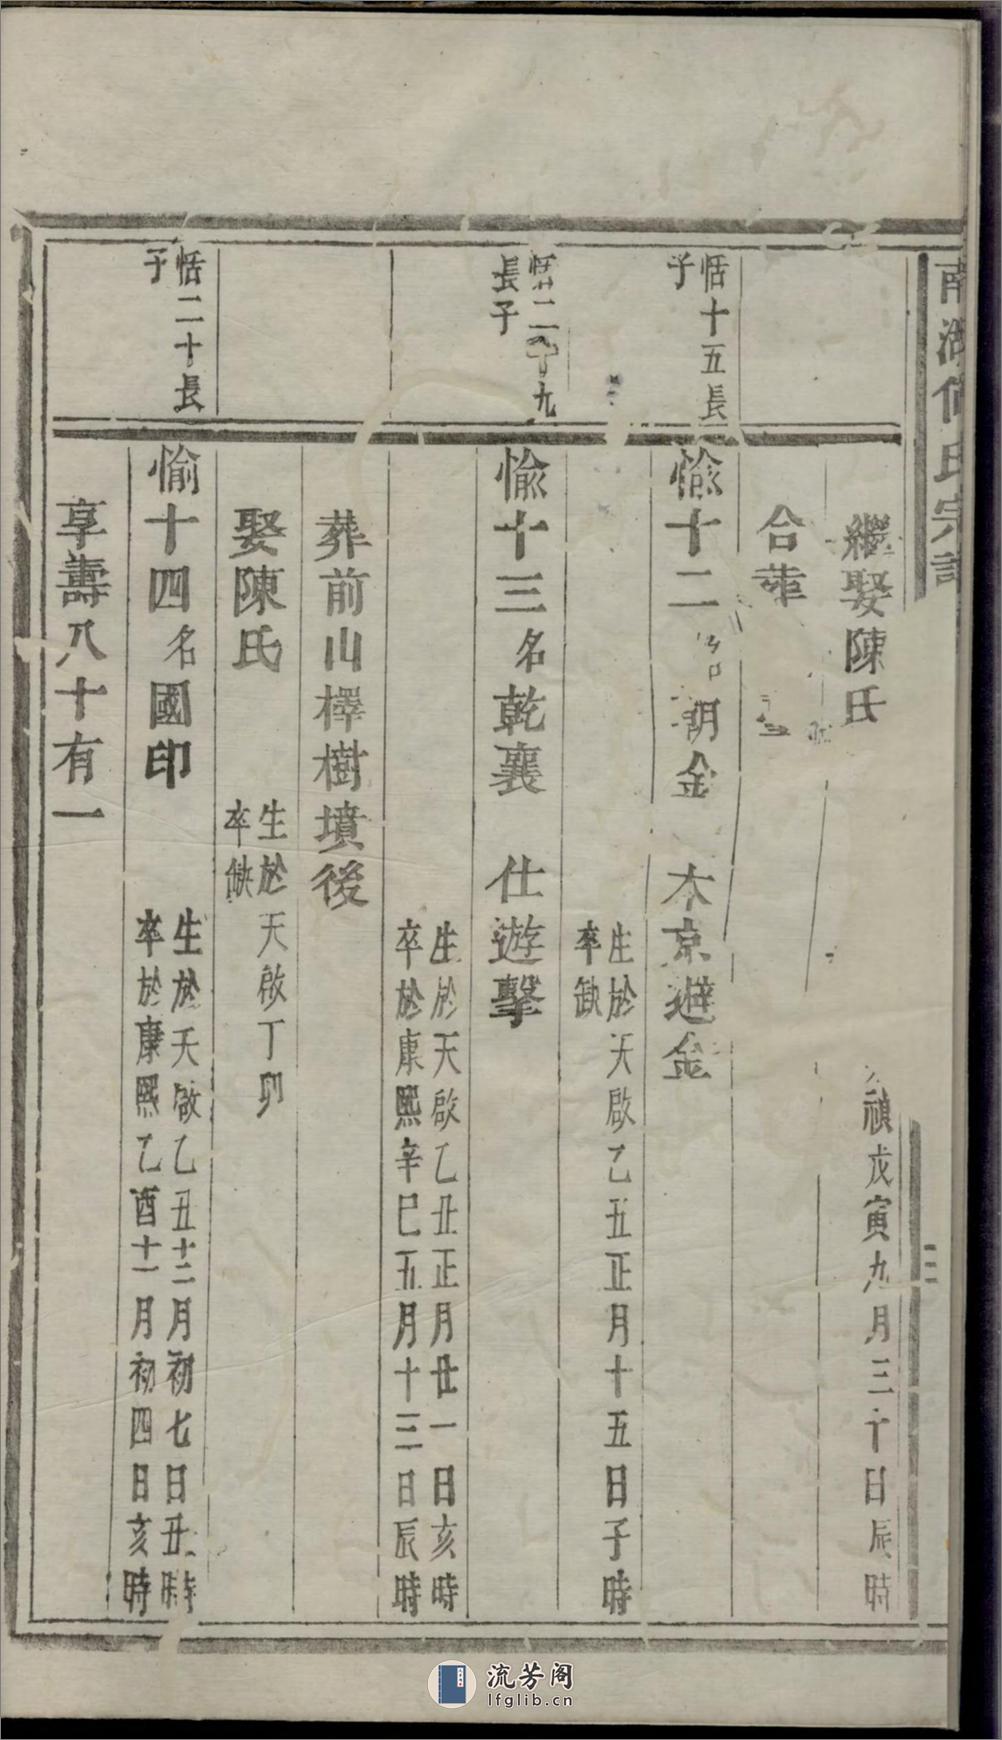 南湖何氏宗譜
繼娶陳氏
禎戊寅九月三十日辰時
合葬
恬十五長
子
愉十二 明金 木京避金
生於天啟乙五正月十五日子時
卒缺
恬二十九
長子
愉十三名乾襄 仕遊擊
生於天啟乙丑正月廿一日亥時
卒於康熙辛巳五月十三日辰時
葬前山檡樹墳後
娶陳氏
生於天啟丁卯
卒缺
恬二十長
子
愉十四名國印
生於天啟乙丑十二月初七日丑時
卒於康熙乙酉十一月初四日亥時
享壽八十有一
流芳阁
lfglib.cn